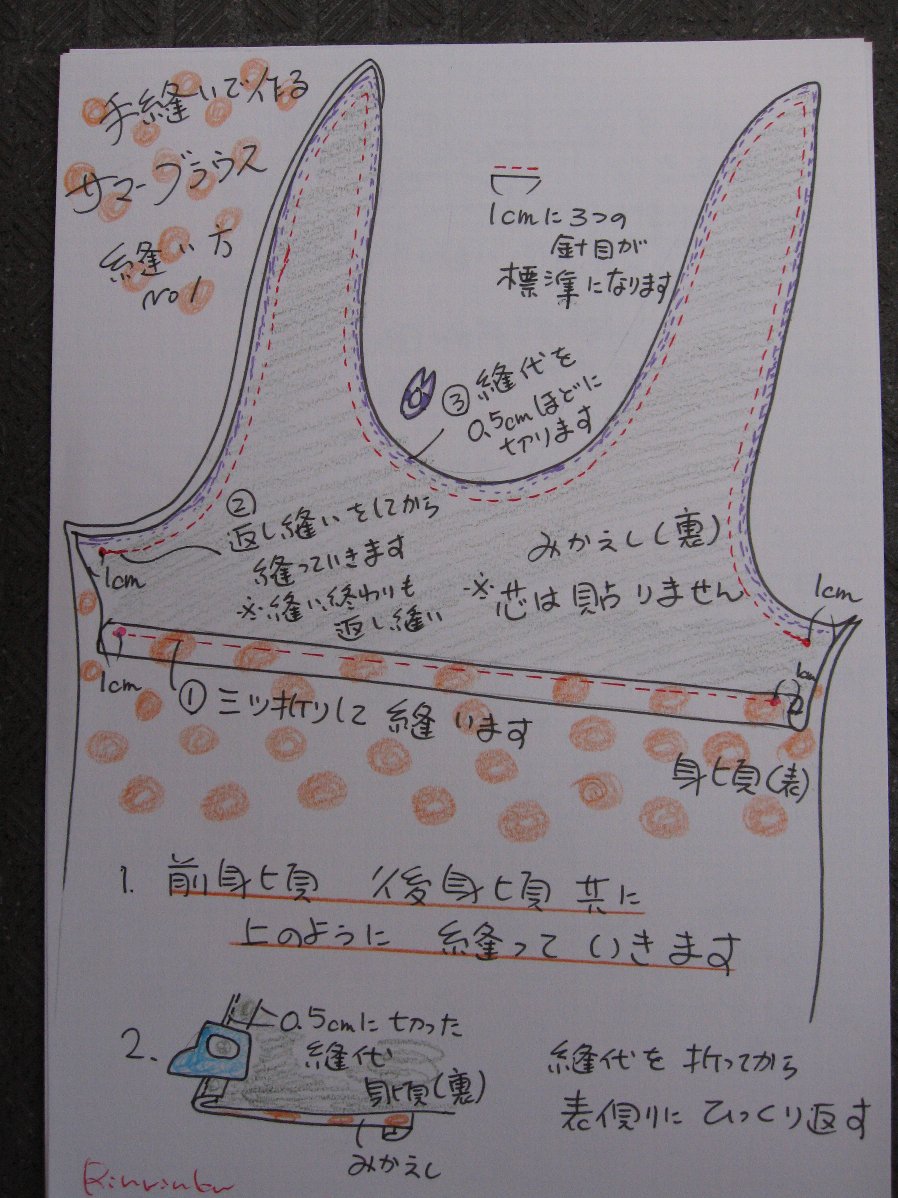 手縫いで作る
サマーブラウス
縫い方
No1
1cmに3つの
針目が
標準になります
③縫代を
0.5cmほどに
切ります
②
返し縫いをしてから
縫っていきます
※縫い終わりも
返し縫い
みかえし(裏)
※芯は貼りません
1cm
1cm
1cm
1cm
①三ツ折りして縫います
身頃(表)
1. 前身頃 後身頃共に
上のように 縫っていきます
2.
0.5cmに切った
縫代
身頃(裏)
みかえし
縫代を折ってから
表側にひっくり返す